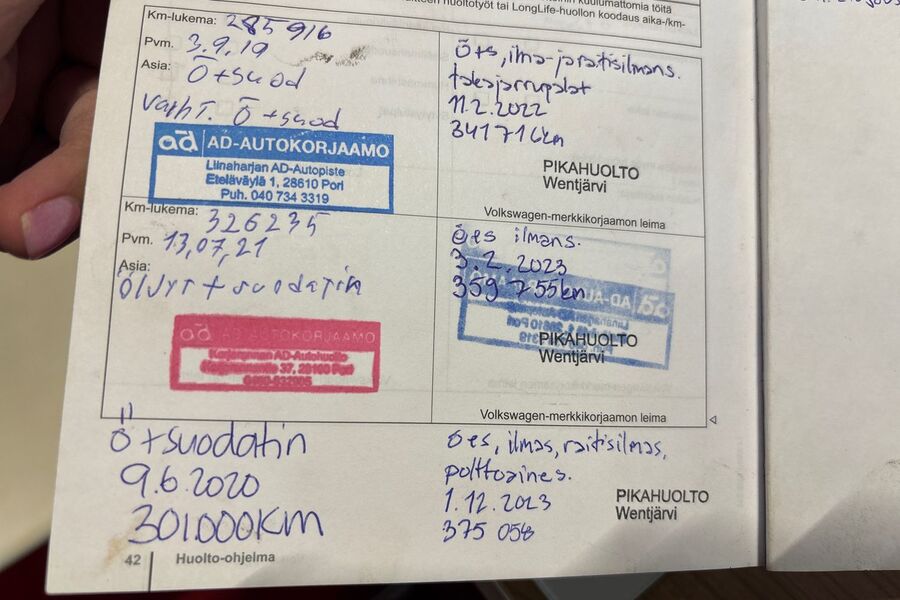 Km-lukema: 285916
Pvm. 3.9.19
Asia: Ö+suod
vaiht. Ö+suod
ad AD-AUTOKORJAAMO
Liinaharjan AD-Autopiste
Eteläväylä 1, 28610 Pori
Puh. 040 734 3319
Km-lukema: 326235
Pvm. 13,07,21
Asia:
Öljyt + suodatin
ad AD-AUTOKORJAAMO
AD-Autohuolto
37, 28100 Pori
Ö+suodatin
9.6.2020
301000KM
42 Huolto-ohjelma
huoltotyöt tai LongLife-huollon koodaus aika-/km-
Öts, ilma-ja raitisilmans.
takajarrupalat
11.2.2022
341716km
PIKAHUOLTO
Wentjärvi
Volkswagen-merkkikorjaamon leima
Öes ilmans.
3.2.2023
359 755km
PIKAHUOLTO
Wentjärvi
Volkswagen-merkkikorjaamon leima
öes, ilmas, raitisilmas,
polttoaines.
1.12.2023
375 058
PIKAHUOLTO
Wentjärvi